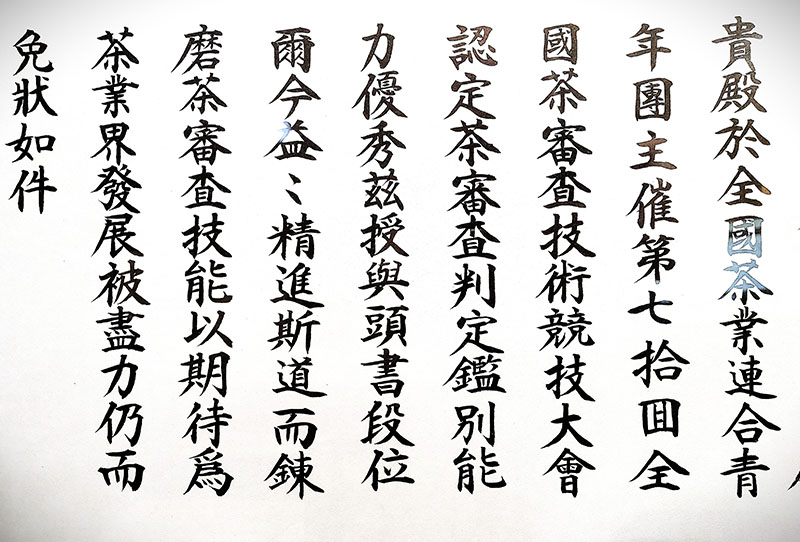 貴殿於全國茶業連合青
年團主催第七拾囬全
國茶審査技術競技大會
認定茶審査判定鑑別能
力優秀茲授與頭書段位
爾今益〻精進斯道而錬
磨茶審査技能以期待爲
茶業界發展被盡力仍而
免狀如件